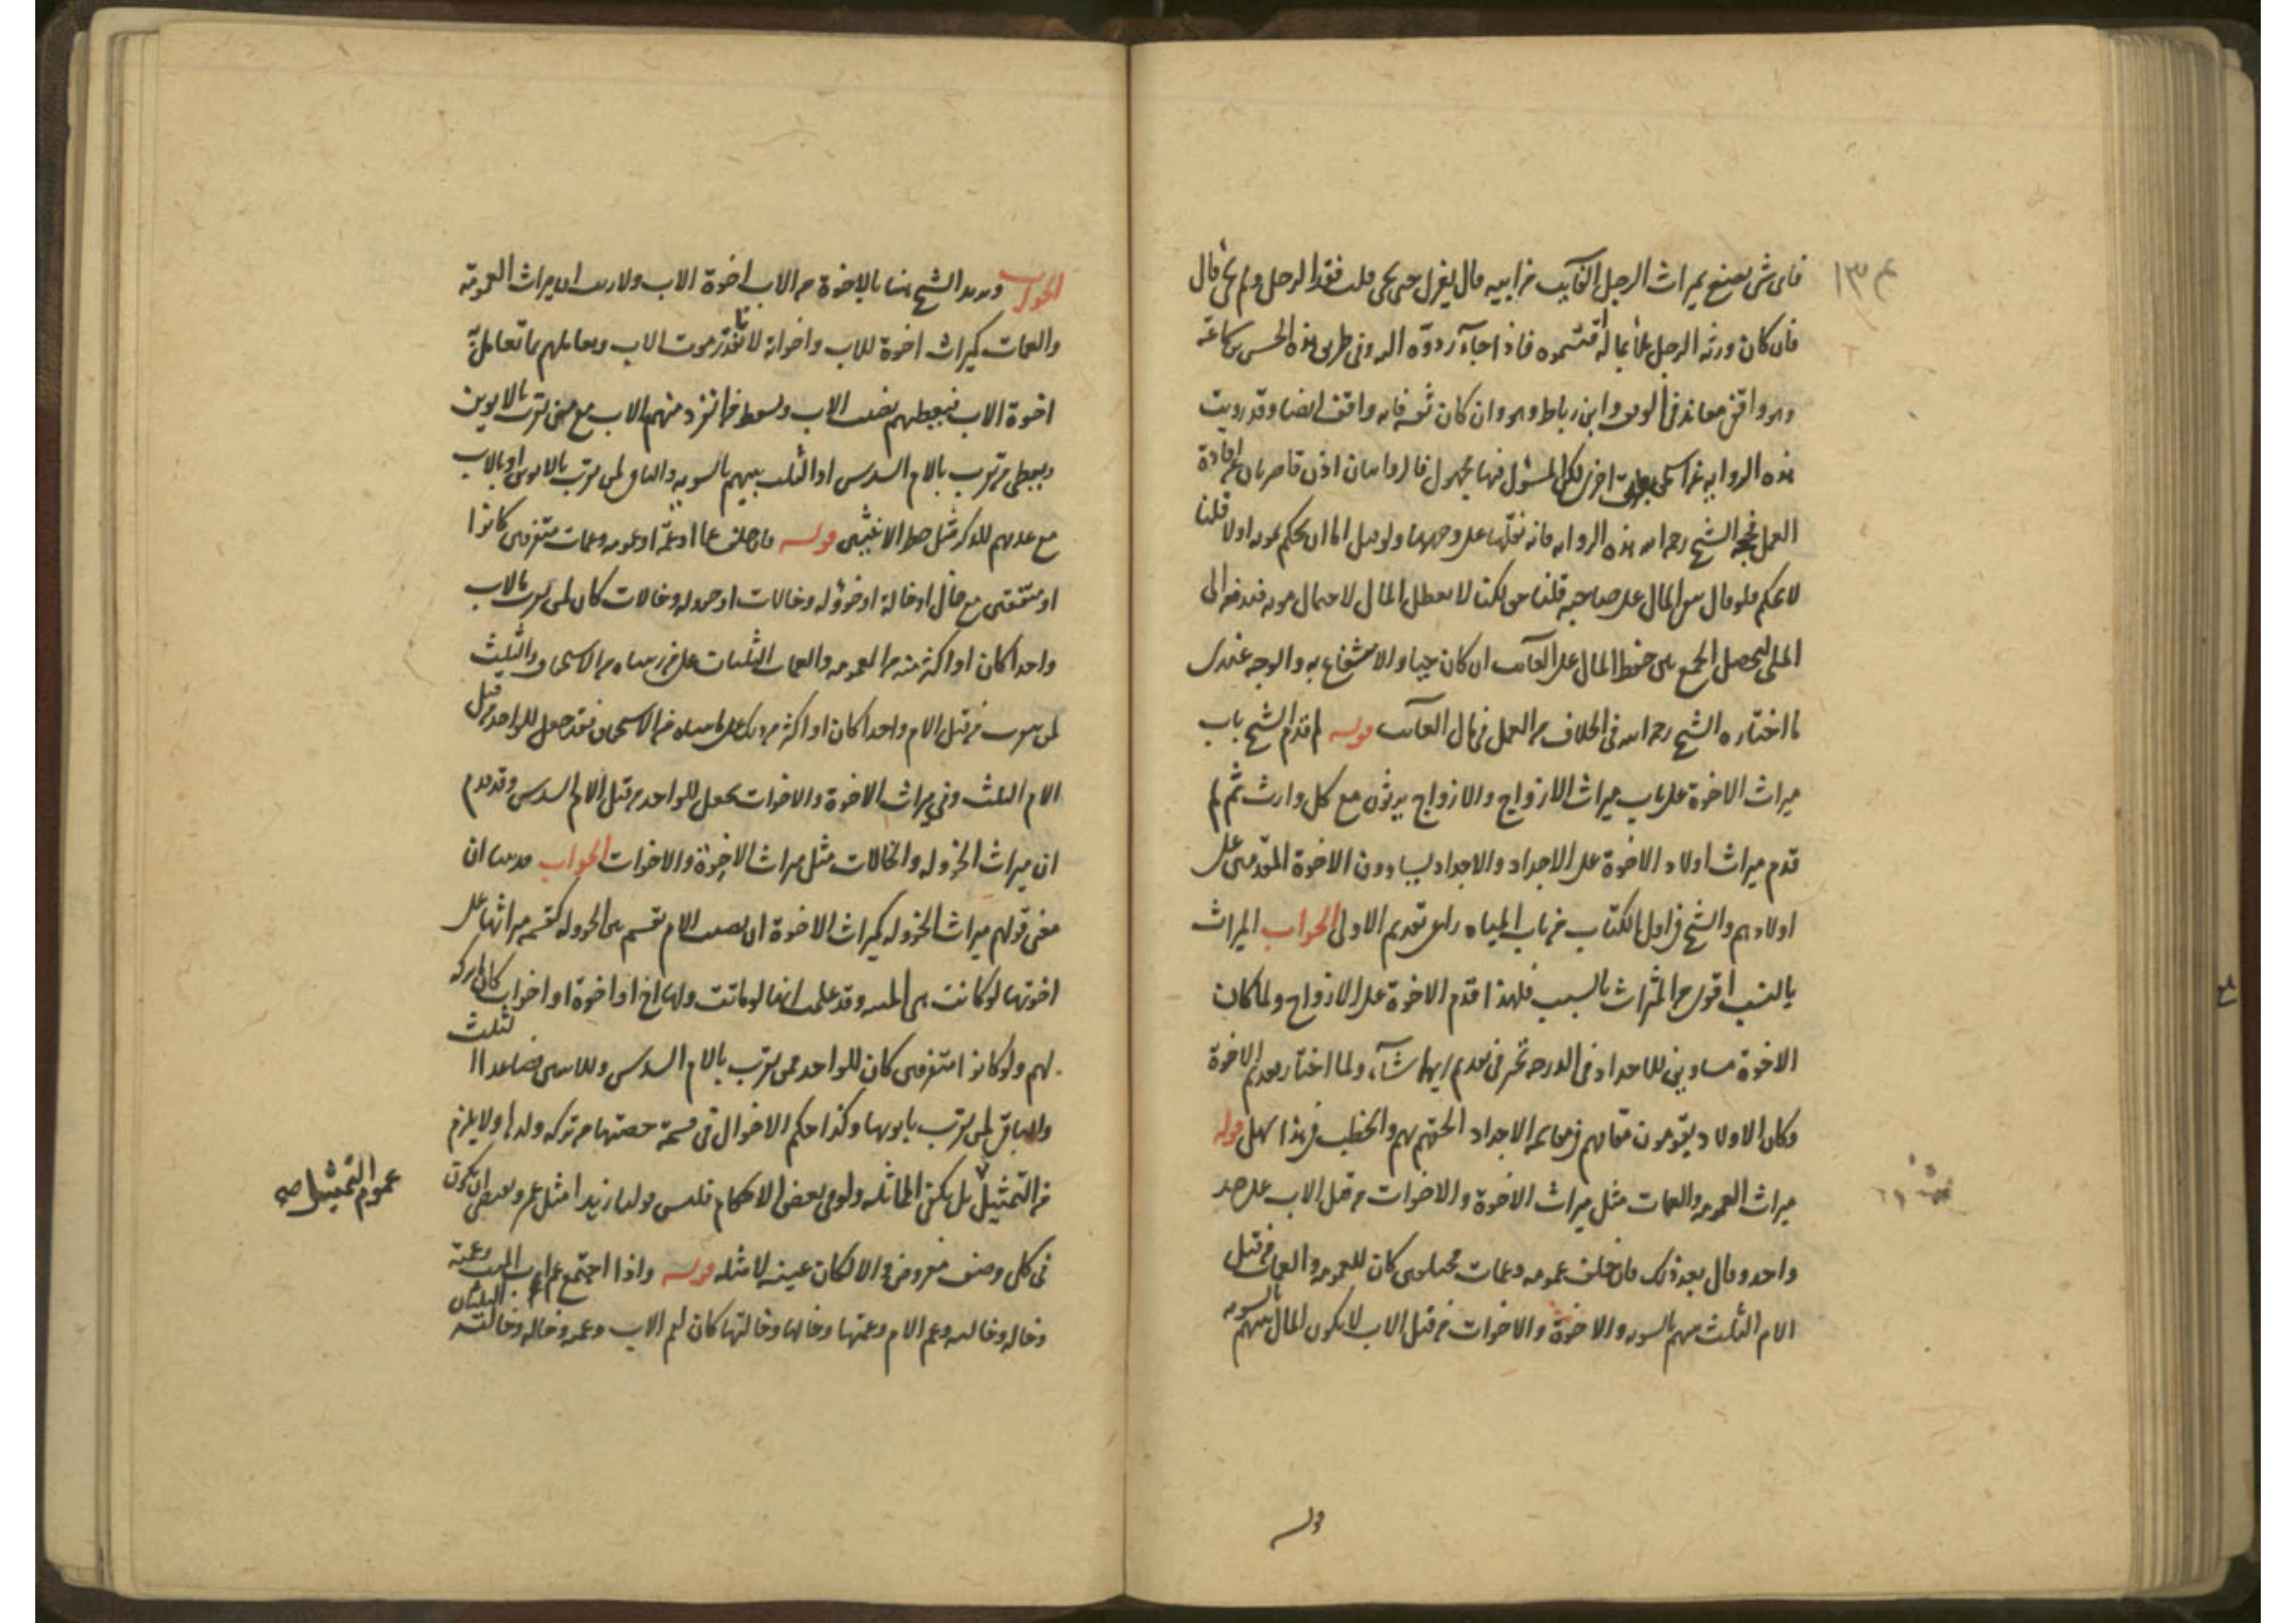 فاى شى يصنع بميراث الرجل الغائب من ابيه قال يعزل حتى يجى قلت فقد الرجل ولم يجى قال
فان كان ورثة الرجل ملأ بماله اقتسموه فاذا جاء ردوه اليه وفى طريق هذه الحسن بن سماعة
وهو واقفى معاند فى الوقف وابن رباط وهو وان كان ثقة فانه واقف ايضا وقد رويت
هذه الرواية عن اسحق بطريق اخرى لكن المسئول فيها مجهول فالروايتان اذن قاصرتان عن افادة
العمل فحجة الشيخ رحمه الله هذه الرواية فانه نقلها على وجهها ولو قيل اما ان يحكم بموته اولا قلنا
لا يحكم فلو قال يبقى المال على صاحبه قلنا حق لكنا لا نعطل المال لاحتمال موته فندفعه الى
الملى ليحصل الجمع بين حفظ المال على الغائب ان كان حيا والانتفاع به والوجه عندى
ما اختاره الشيخ رحمه الله فى الخلاف من العمل فى مال الغائب قوله لم قدم الشيخ باب
ميراث الاخوة على باب ميراث الازواج والازواج يرثون مع كل وارث ثم لم
قدم ميراث اولاد الاخوة على الاجداد والاجداد ليسا دون الاخوة المقدمين على
اولادهم والشيخ فى اول الكتاب من باب المياه راى تقديم الاولى الجواب الميراث
بالنسب اقوى من الميراث بالسبب فلهذا قدم الاخوة على الازواج ولما كان
الاخوة مساوين للاجداد فى الدرجة تخير فى تقديم ايهما شاء ولما اختار تقديم الاخوة
وكان الاولاد يقومون مقامهم فى مقاسمة الاجداد الحقهم بهم والخطب فى هذا سهل قوله
ميراث العمومة والعمات مثل ميراث الاخوة والاخوات من قبل الاب على حد
واحد وقال بعد ذلك فان خلف عمومة وعمات كان للعمومة والعمات من قبل
الام الثلث بينهم بالسوية والاخوة والاخوات من قبل الاب لا يكون المال بينهم بالسوية
قوله
الجواب ويريد الشيخ هنا بالاخوة من الاب اخوة الاب ولا ريب ان ميراث العمومة
والعمات كميراث اخوة للاب واخواته لانا نقدر موت الاب ونعاملهم بما تعامل به
اخوة الاب فنعطيهم نصيب الاب ونسقط من انفرد منهم بالاب مع من تقرب بالابوين
ونعطى من تقرب بالام السدس او الثلث بينهم بالسوية والباقى لمن تقرب بالابوين او بالاب
مع عدمهم للذكر مثل حظ الانثيين قوله فان خلف عما او عمة او عمومة وعمات متفرقين كانوا
او متفقين مع خال او خالة او خؤولة وخالات او خؤولة وخالات كان لمن تقرب بالاب
واحدا كان او اكثر منه من العمومة والعمات الثلثان على ما رتبناه من الاستحقاق والثلث
لمن تقرب من قبل الام واحدا كان او اكثر من ذلك على ما بيناه من الاستحقاق فقد جعل للواحد من قبل
الام الثلث وفى ميراث الاخوة والاخوات يجعل للواحد من قبل الام السدس وقد قدم
ان ميراث الخؤولة والخالات مثل ميراث الاخوة والاخوات الجواب قد بينا ان
معنى قولهم ميراث الخؤولة كميراث الاخوة ان نصيب الام تقسم بين الخؤولة كقسمة ميراثها على
اخوتها لو كانت هى الميتة وقد علمت انها لو ماتت ولها اخ او اخوة او اخوات كان تركة
لهم ولو كانوا متفرقين كان للواحد ممن تقرب بالام السدس وللاثنين فصاعدا الثلث
والباقى لمن تقرب بابويها وكذا حكم الاخوال فى قسمة حصتها من تركة ولدها ولا يلزم
من التمثيل بل يكفى المماثلة ولو فى بعض الاحكام فليس قولنا زيد مثل عمرو يقتضى ان يكون
فى كل وصف مفروض والا لكان عينه لا مثله قوله واذا اجتمع عم اب الميت وعمته
وخاله وخالته وعم الام وعمتها وخالها وخالتها كان لعم الاب وعمته وخاله وخالته الثلثان
عموم التمثيل صح